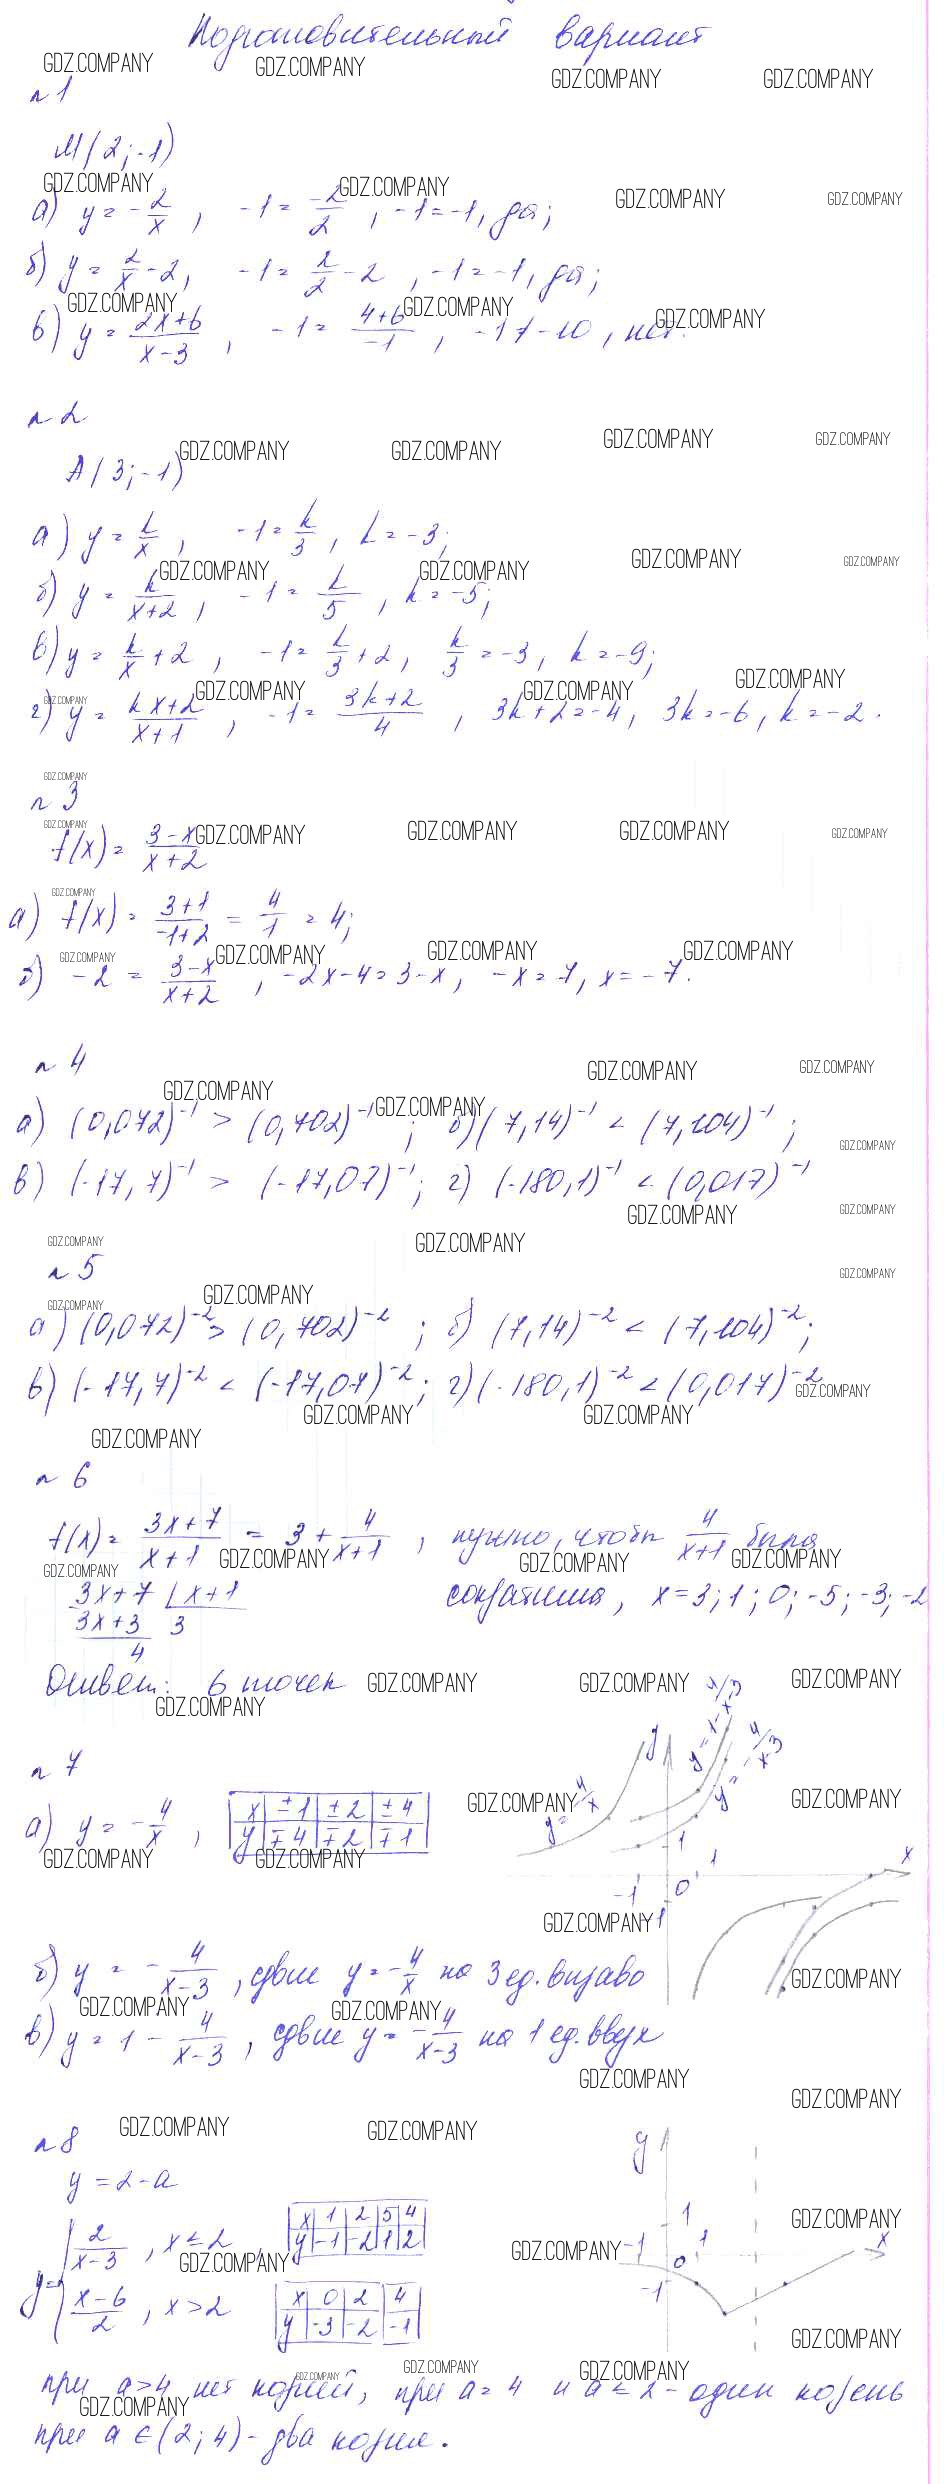 Подготовительный вариант
n 1
M(2;-1)
а) y = -2/x, -1 = -2/2, -1 = -1, да;
б) y = 2/x - 2, -1 = 2/2 - 2, -1 = -1, да;
в) y = (2x+6)/(x-3), -1 = (4+6)/(-1), -1 ≠ -10, нет.
n 2
A(3;-1)
а) y = k/x, -1 = k/3, k = -3;
б) y = k/(x+2), -1 = k/5, k = -5;
в) y = k/x + 2, -1 = k/3 + 2, k/3 = -3, k = -9;
г) y = (kx+2)/(x+1), -1 = (3k+2)/4, 3k+2 = -4, 3k = -6, k = -2.
n 3
f(x) = (3-x)/(x+2)
а) f(x) = (3+1)/(-1+2) = 4/1 = 4;
б) -2 = (3-x)/(x+2), -2x-4 = 3-x, -x = 7, x = -7.
n 4
а) (0,072)^-1 > (0,702)^-1; б) (7,14)^-1 < (7,104)^-1;
в) (-17,7)^-1 > (-17,07)^-1; г) (-180,1)^-1 < (0,017)^-1
n 5
а) (0,072)^-2 > (0,702)^-2; б) (7,14)^-2 < (7,104)^-2;
в) (-17,7)^-2 < (-17,07)^-2; г) (-180,1)^-2 < (0,017)^-2
n 6
f(x) = (3x+7)/(x+1) = 3 + 4/(x+1), нужно, чтобы 4/(x+1) была
3x+7 | x+1 сократима, x = 3; 1; 0; -5; -3; -2
3x+3 3
4
Ответ: 6 точек
n 7
а) y = -4/x, x ±1 ±2 ±4
y ∓4 ∓2 ∓1
y = -4/x y y = 1 - 4/(x-3) y = -4/(x-3)
1 1 x
-1 0
-1
б) y = -4/(x-3), сдвиг y = -4/x на 3 ед. вправо
в) y = 1 - 4/(x-3), сдвиг y = -4/(x-3) на 1 ед. вверх
n 8
y = 2-a
y = { 2/(x-3), x ≤ 2, x 1 2 5 4
y -1 -2 1 2
(x-6)/2, x > 2 x 0 2 4
y -3 -2 -1
y 1 1 x
-1 0
-1
при a > 4 нет корней, при a = 4 и a ≤ 2 - один корень
при a ∈ (2; 4) - два корня.
GDZ.COMPANY